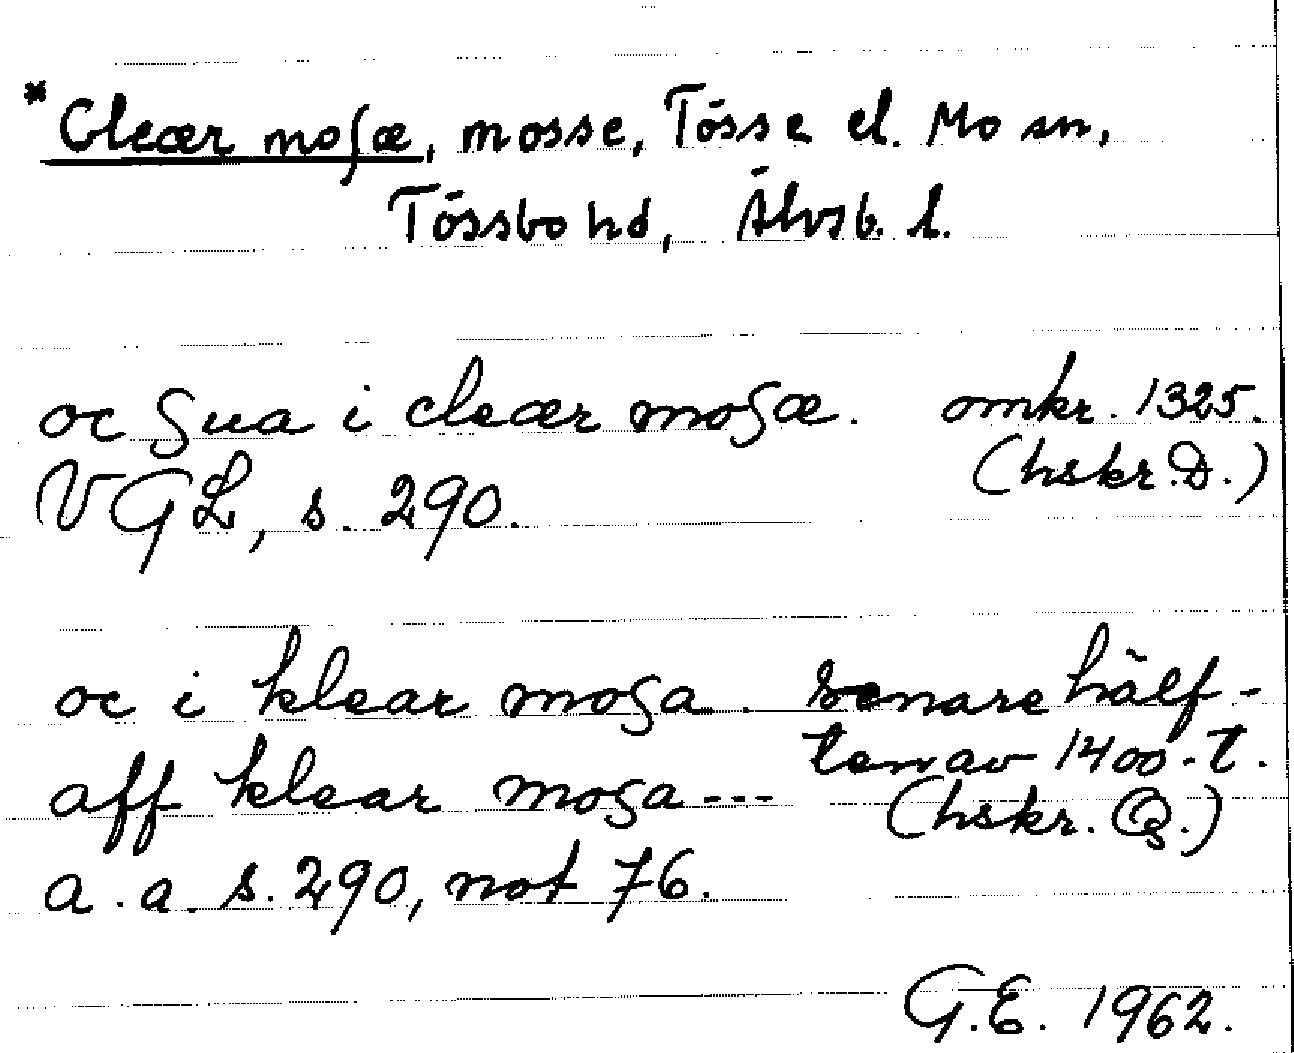 *Cleær moſæ, mosse, Tösse el. Mo sn,
Tössbo hd, Älvsb. l.
oc sua i cleær mosæ. omkr. 1325.
VGL, s. 290. (hskr. D.)
oc i klear mosa. senare hälf-
aff klear mosa --- ten av 1400-t.
(hskr. Q.)
a. a. s. 290, not 76.
G.E. 1962.